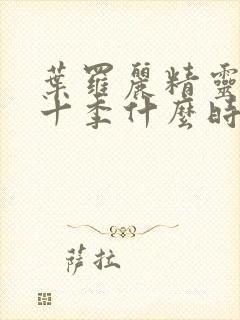 葉羅麗精靈
十季什麼時
薩拉